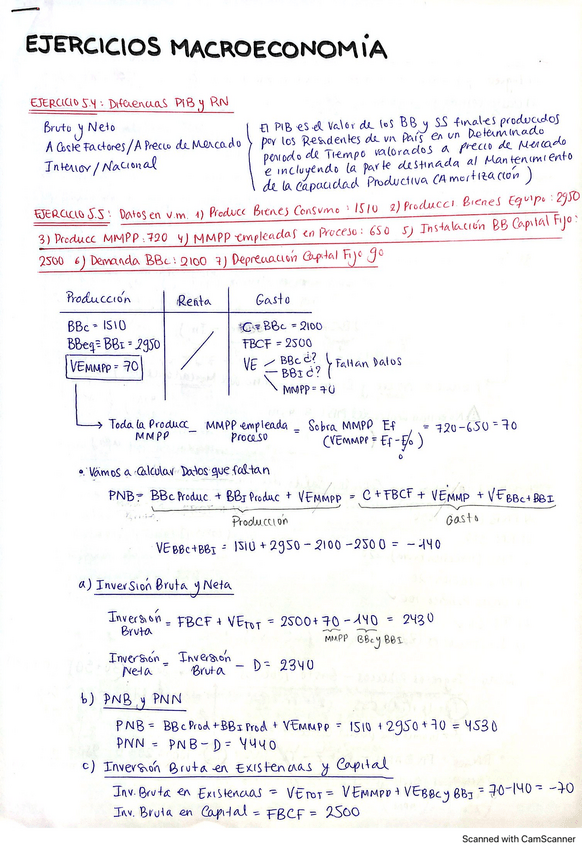 EJERCICIOS MACROECONOMÍA
EJERCICIO 5.4: Diferencias PIB y RN
Bruto y Neto
A Coste Factores/A Precio de Mercado
Interior/Nacional
El PIB es el valor de los BB y SS finales producidos
por los Residentes de un País en un Determinado
periodo de Tiempo valorados a precio de Mercado
e incluyendo la parte destinada al Mantenimiento
de la Capacidad Productiva (Amortización)
EJERCICIO 5.5: Datos en u.m. 1) Producc Bienes Consumo: 1510 2) Producci Bienes Equipo: 2950
3) Producc MMPP: 720 4) MMPP empleadas en Proceso: 650 5) Instalación BB Capital Fijo:
2500 6) Demanda BBc: 2100 7) Depreciación Capital Fijo 90
Producción Renta Gasto
BBc = 1510
BBeq = BBI = 2950
VEMMPP = 70
C = BBc = 2100
FBCF = 2500
VE
BBc ¿?
BBI ¿?
MMPP = 70
Faltan Datos
Toda la Producc MMPP - MMPP empleada proceso = Sobra MMPP (VEMMPP = Ef - Eo) Ef = 720-650 = 70
• Vamos a Calcular Datos que faltan
PNB = BBc Produc + BBI Produc + VEMMPP = C + FBCF + VEMMP + VEBBc+BBI
Producción Gasto
VEBBc+BBI = 1510 + 2950 - 2100 - 2500 = -140
a) Inversión Bruta y Neta
Inversión Bruta = FBCF + VETOT = 2500 + 70 - 140 = 2430
MMPP BBc y BBI
Inversión Neta = Inversión Bruta - D = 2340
b) PNB y PNN
PNB = BBc Prod + BBI Prod + VEMMPP = 1510 + 2950 + 70 = 4530
PNN = PNB - D = 4440
c) Inversión Bruta en Existencias y Capital
Inv. Bruta en Existencias = VETOT = VEMMPP + VEBBc y BBI = 70-140 = -70
Inv. Bruta en Capital = FBCF = 2500
Scanned with CamScanner